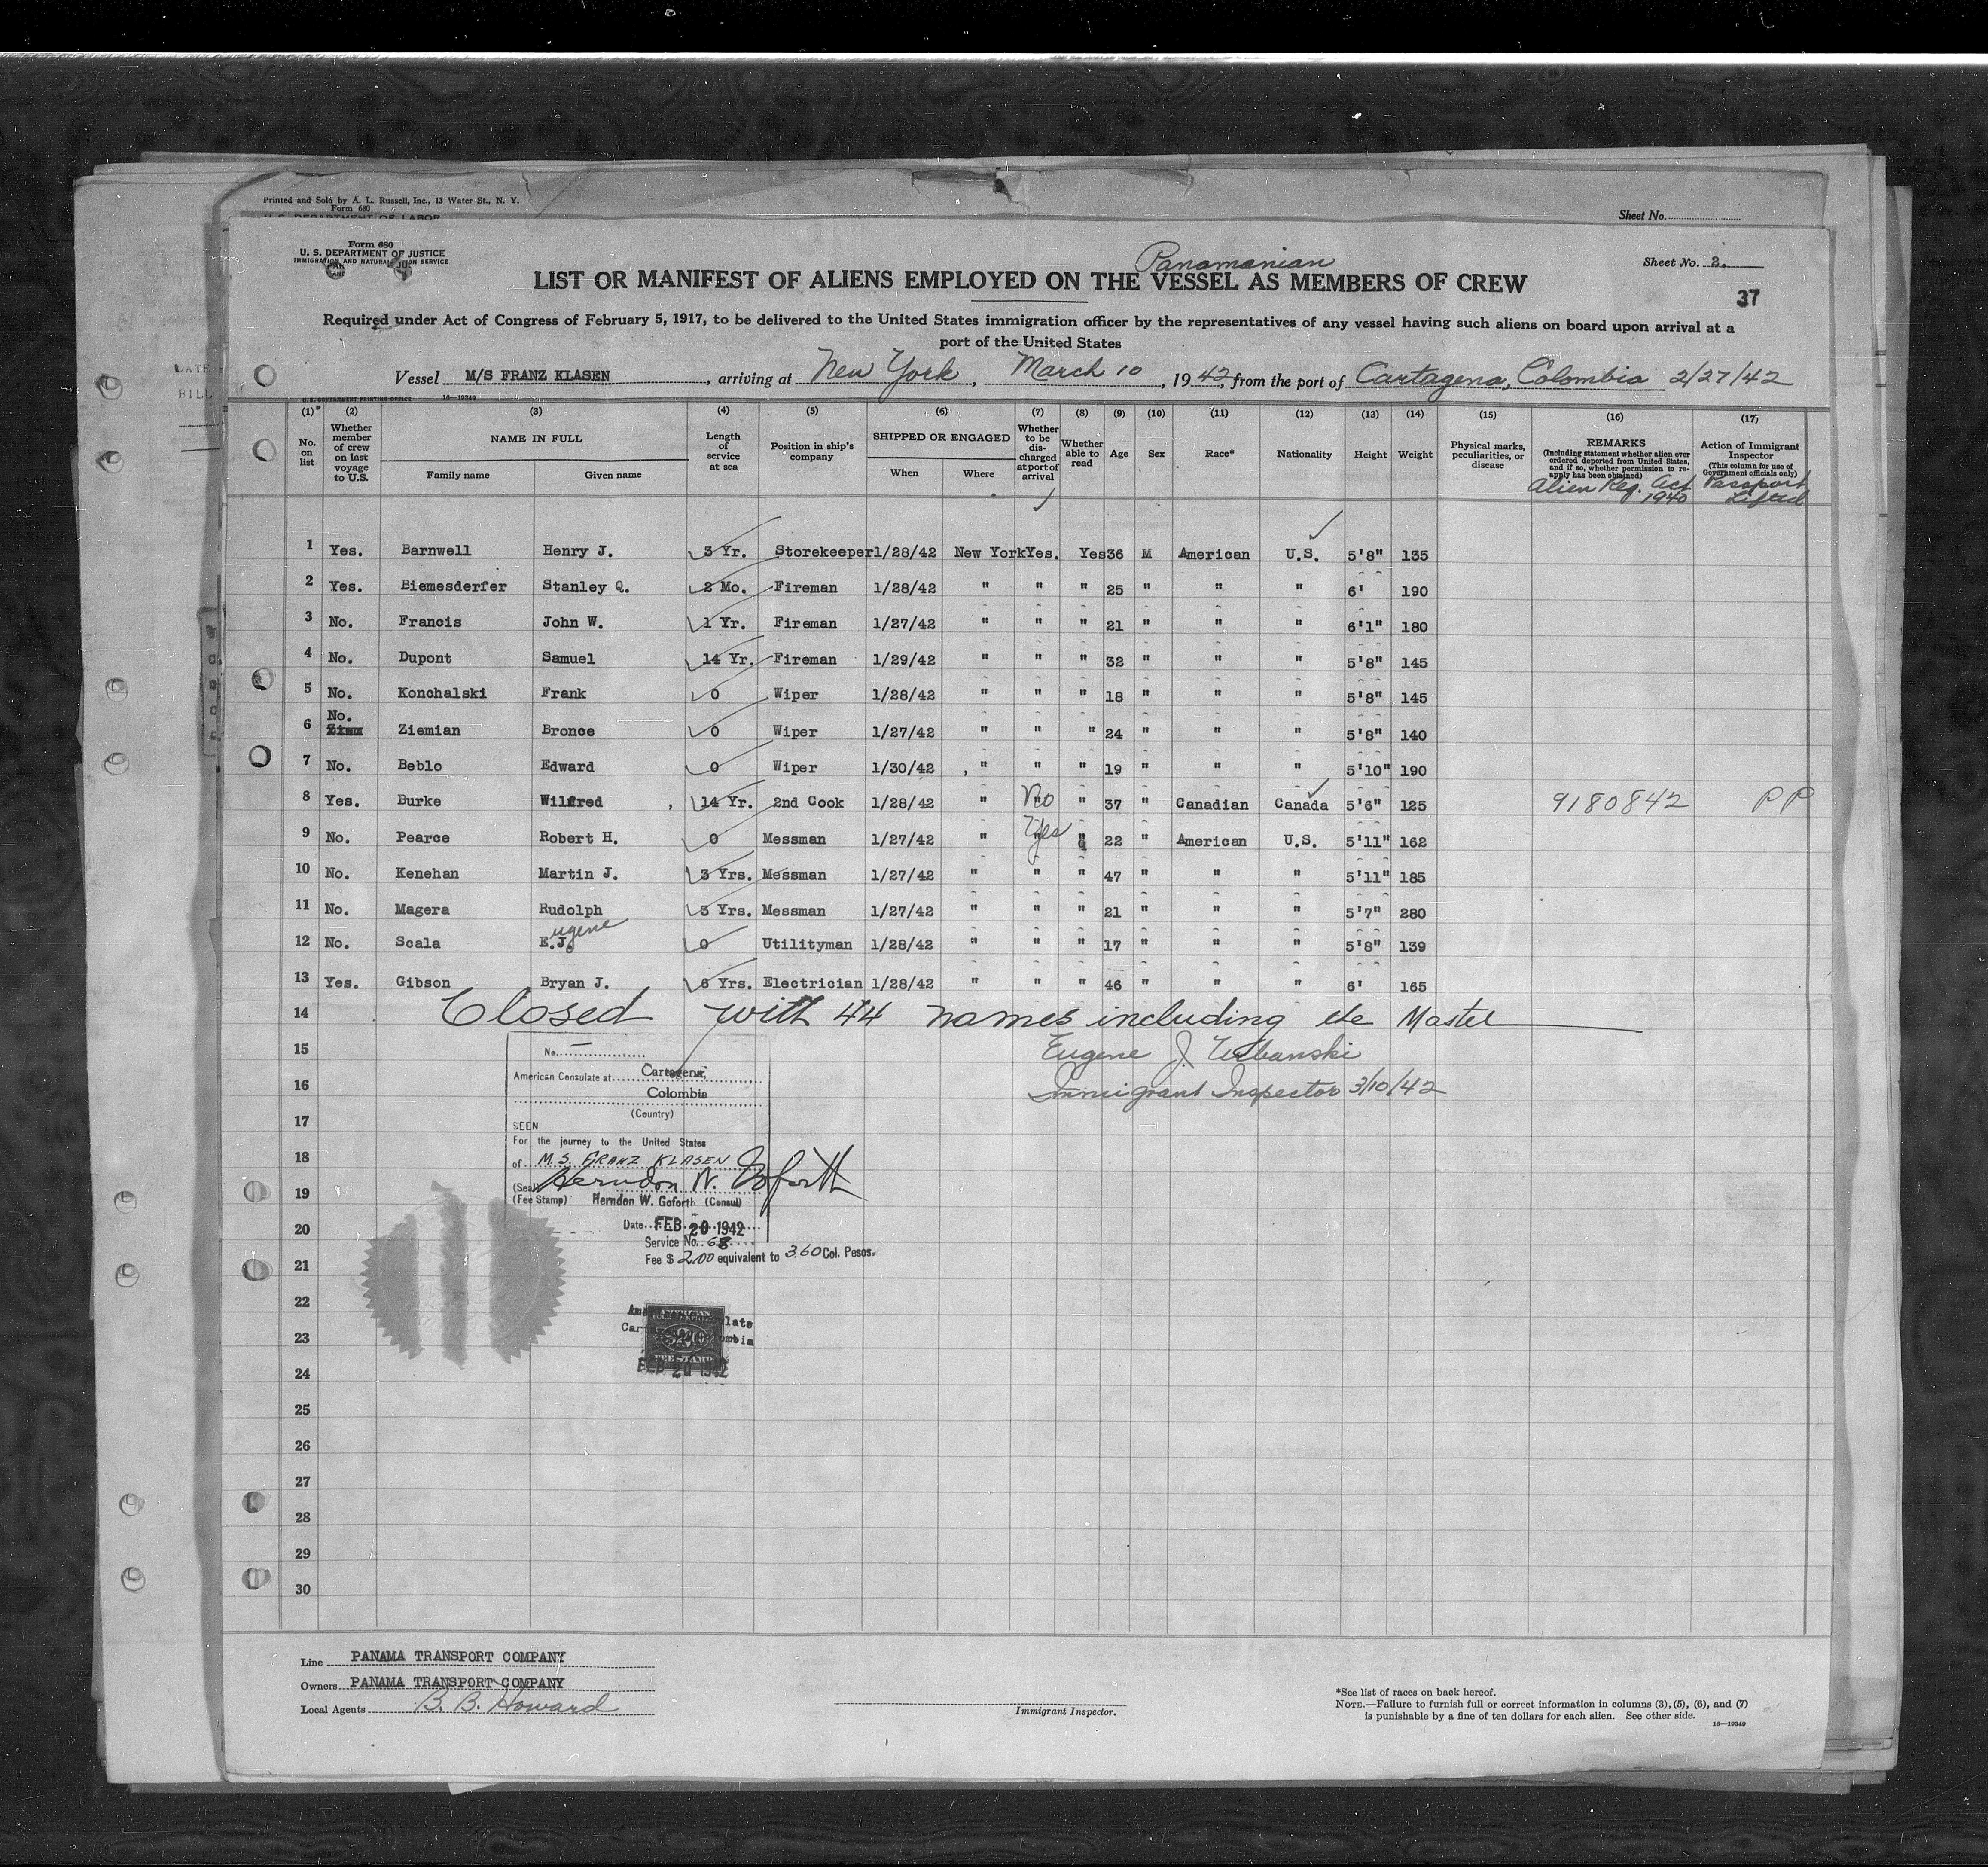 Printed and Sold by A. L. Russell, Inc., 13 Water St., N. Y.
Form 680
U. S. DEPARTMENT OF LABOR
Sheet No.
Form 680
U. S. DEPARTMENT OF JUSTICE
IMMIGRATION AND NATURALIZATION SERVICE
Panamanian
Sheet No. 2.
LIST OR MANIFEST OF ALIENS EMPLOYED ON THE VESSEL AS MEMBERS OF CREW
37
Required under Act of Congress of February 5, 1917, to be delivered to the United States immigration officer by the representatives of any vessel having such aliens on board upon arrival at a
port of the United States
Vessel M/S FRANZ KLASEN, arriving at New York, March 10, 1942, from the port of Cartagena, Colombia 2/27/42
U.S. GOVERNMENT PRINTING OFFICE 16—19349
(1) (2) (3) (4) (5) (6) (7) (8) (9) (10) (11) (12) (13) (14) (15) (16) (17)
No. on list
Whether member of crew on last voyage to U.S.
NAME IN FULL
Family name Given name
Length of service at sea
Position in ship's company
SHIPPED OR ENGAGED
When Where
Whether to be discharged at port of arrival
Whether able to read
Age
Sex
Race*
Nationality
Height
Weight
Physical marks, peculiarities, or disease
REMARKS
(Including statement whether alien ever ordered deported from United States, and if so, whether permission to re-apply has been obtained)
Alien Reg. Act 1940
Action of Immigrant Inspector
(This column for use of Government officials only)
Passport Lifted
1 Yes. Barnwell Henry J. 3 Yr. Storekeeper 1/28/42 New York Yes. Yes 36 M American U.S. 5'8" 135
2 Yes. Biemesderfer Stanley Q. 2 Mo. Fireman 1/28/42 " " " 25 " " " 6' 190
3 No. Francis John W. 1 Yr. Fireman 1/27/42 " " " 21 " " " 6'1" 180
4 No. Dupont Samuel 14 Yr. Fireman 1/29/42 " " " 32 " " " 5'8" 145
5 No. Konchalski Frank 0 Wiper 1/28/42 " " " 18 " " " 5'8" 145
6 No. Ziemian Bronce 0 Wiper 1/27/42 " " " 24 " " " 5'8" 140
7 No. Beblo Edward 0 Wiper 1/30/42 " " " 19 " " " 5'10" 190
8 Yes. Burke Wilfred 14 Yr. 2nd Cook 1/28/42 " No " 37 " Canadian Canada 5'6" 125 9180842 PP
9 No. Pearce Robert H. 0 Messman 1/27/42 " Yes " 22 " American U.S. 5'11" 162
10 No. Kenehan Martin J. 3 Yrs. Messman 1/27/42 " " " 47 " " " 5'11" 185
11 No. Magera Rudolph 3 Yrs. Messman 1/27/42 " " " 21 " " " 5'7" 280
12 No. Scala E.J. ugene 0 Utilityman 1/28/42 " " " 17 " " " 5'8" 139
13 Yes. Gibson Bryan J. 6 Yrs. Electrician 1/28/42 " " " 46 " " " 6' 165
14 Closed with 44 names including the Master
15 Eugene J. Urbanski
16 Immigrant Inspector 3/10/42
17
18
19
20
21
22
23
24
25
26
27
28
29
30
No.
American Consulate at Cartagena,
Colombia
(Country)
SEEN
For the journey to the United States
of M.S. FRANZ KLASEN
Herndon W. Goforth
(Seal)
(Fee Stamp) Herndon W. Goforth (Consul)
Date FEB 20 1942
Service No. 68
Fee $ 2.00 equivalent to 3.60 Col. Pesos.
FEE STAMP
FEB 20 1942
Line PANAMA TRANSPORT COMPANY
Owners PANAMA TRANSPORT COMPANY
Local Agents B. B. Howard
Immigrant Inspector.
*See list of races on back hereof.
NOTE.—Failure to furnish full or correct information in columns (3), (5), (6), and (7)
is punishable by a fine of ten dollars for each alien. See other side.
16—19349